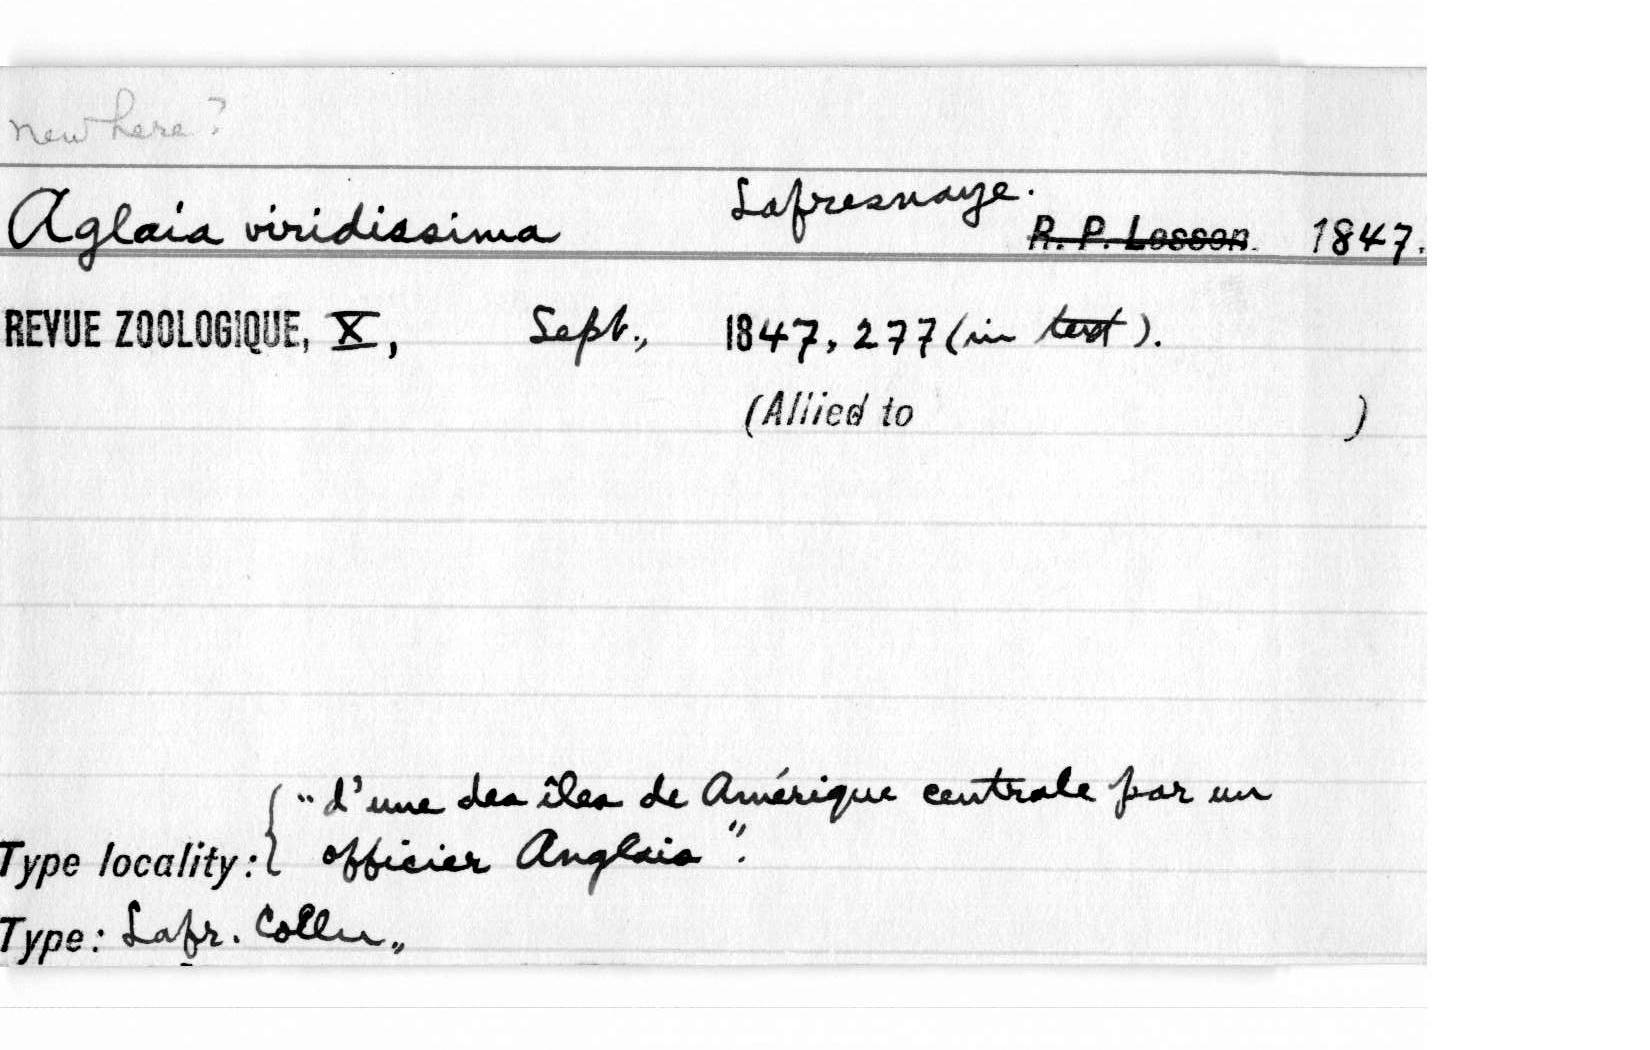 new here?
Lafresnaye.
Aglaia viridissima R. P. Lesson. 1847.
REVUE ZOOLOGIQUE, X, Sept., 1847, 277 (in text).
(Allied to )
"d'une des îles de Amérique centrale par un
Type locality: { officier Anglais".
Type: Lafr. Colln.,